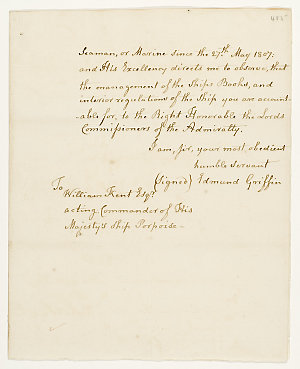 Seaman, or Marine since the 27th May 1807.
and His Excellency directs me to observe, that
the management of the Ships Books, and
interior regulations of the Ship you are account-
able for, to the Right Honorable the Lords
Commissioners of the Admiralty.
I am, Sir, your most obedient
humble Servant
(Signed) Edmund Griffin
To
William Kent Esqr.
acting Commander of His
Majesty's Ship Porpoise -